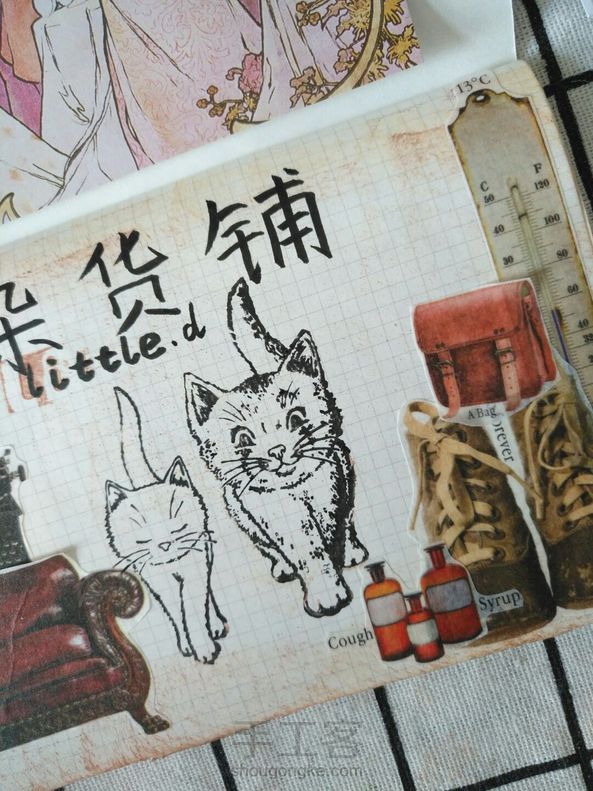 13°C
C F
50 120
40 100
30 80
60
40
杂货铺
little.d
A Bag
orever
Cough
Syrup
手工客
shougongke.com